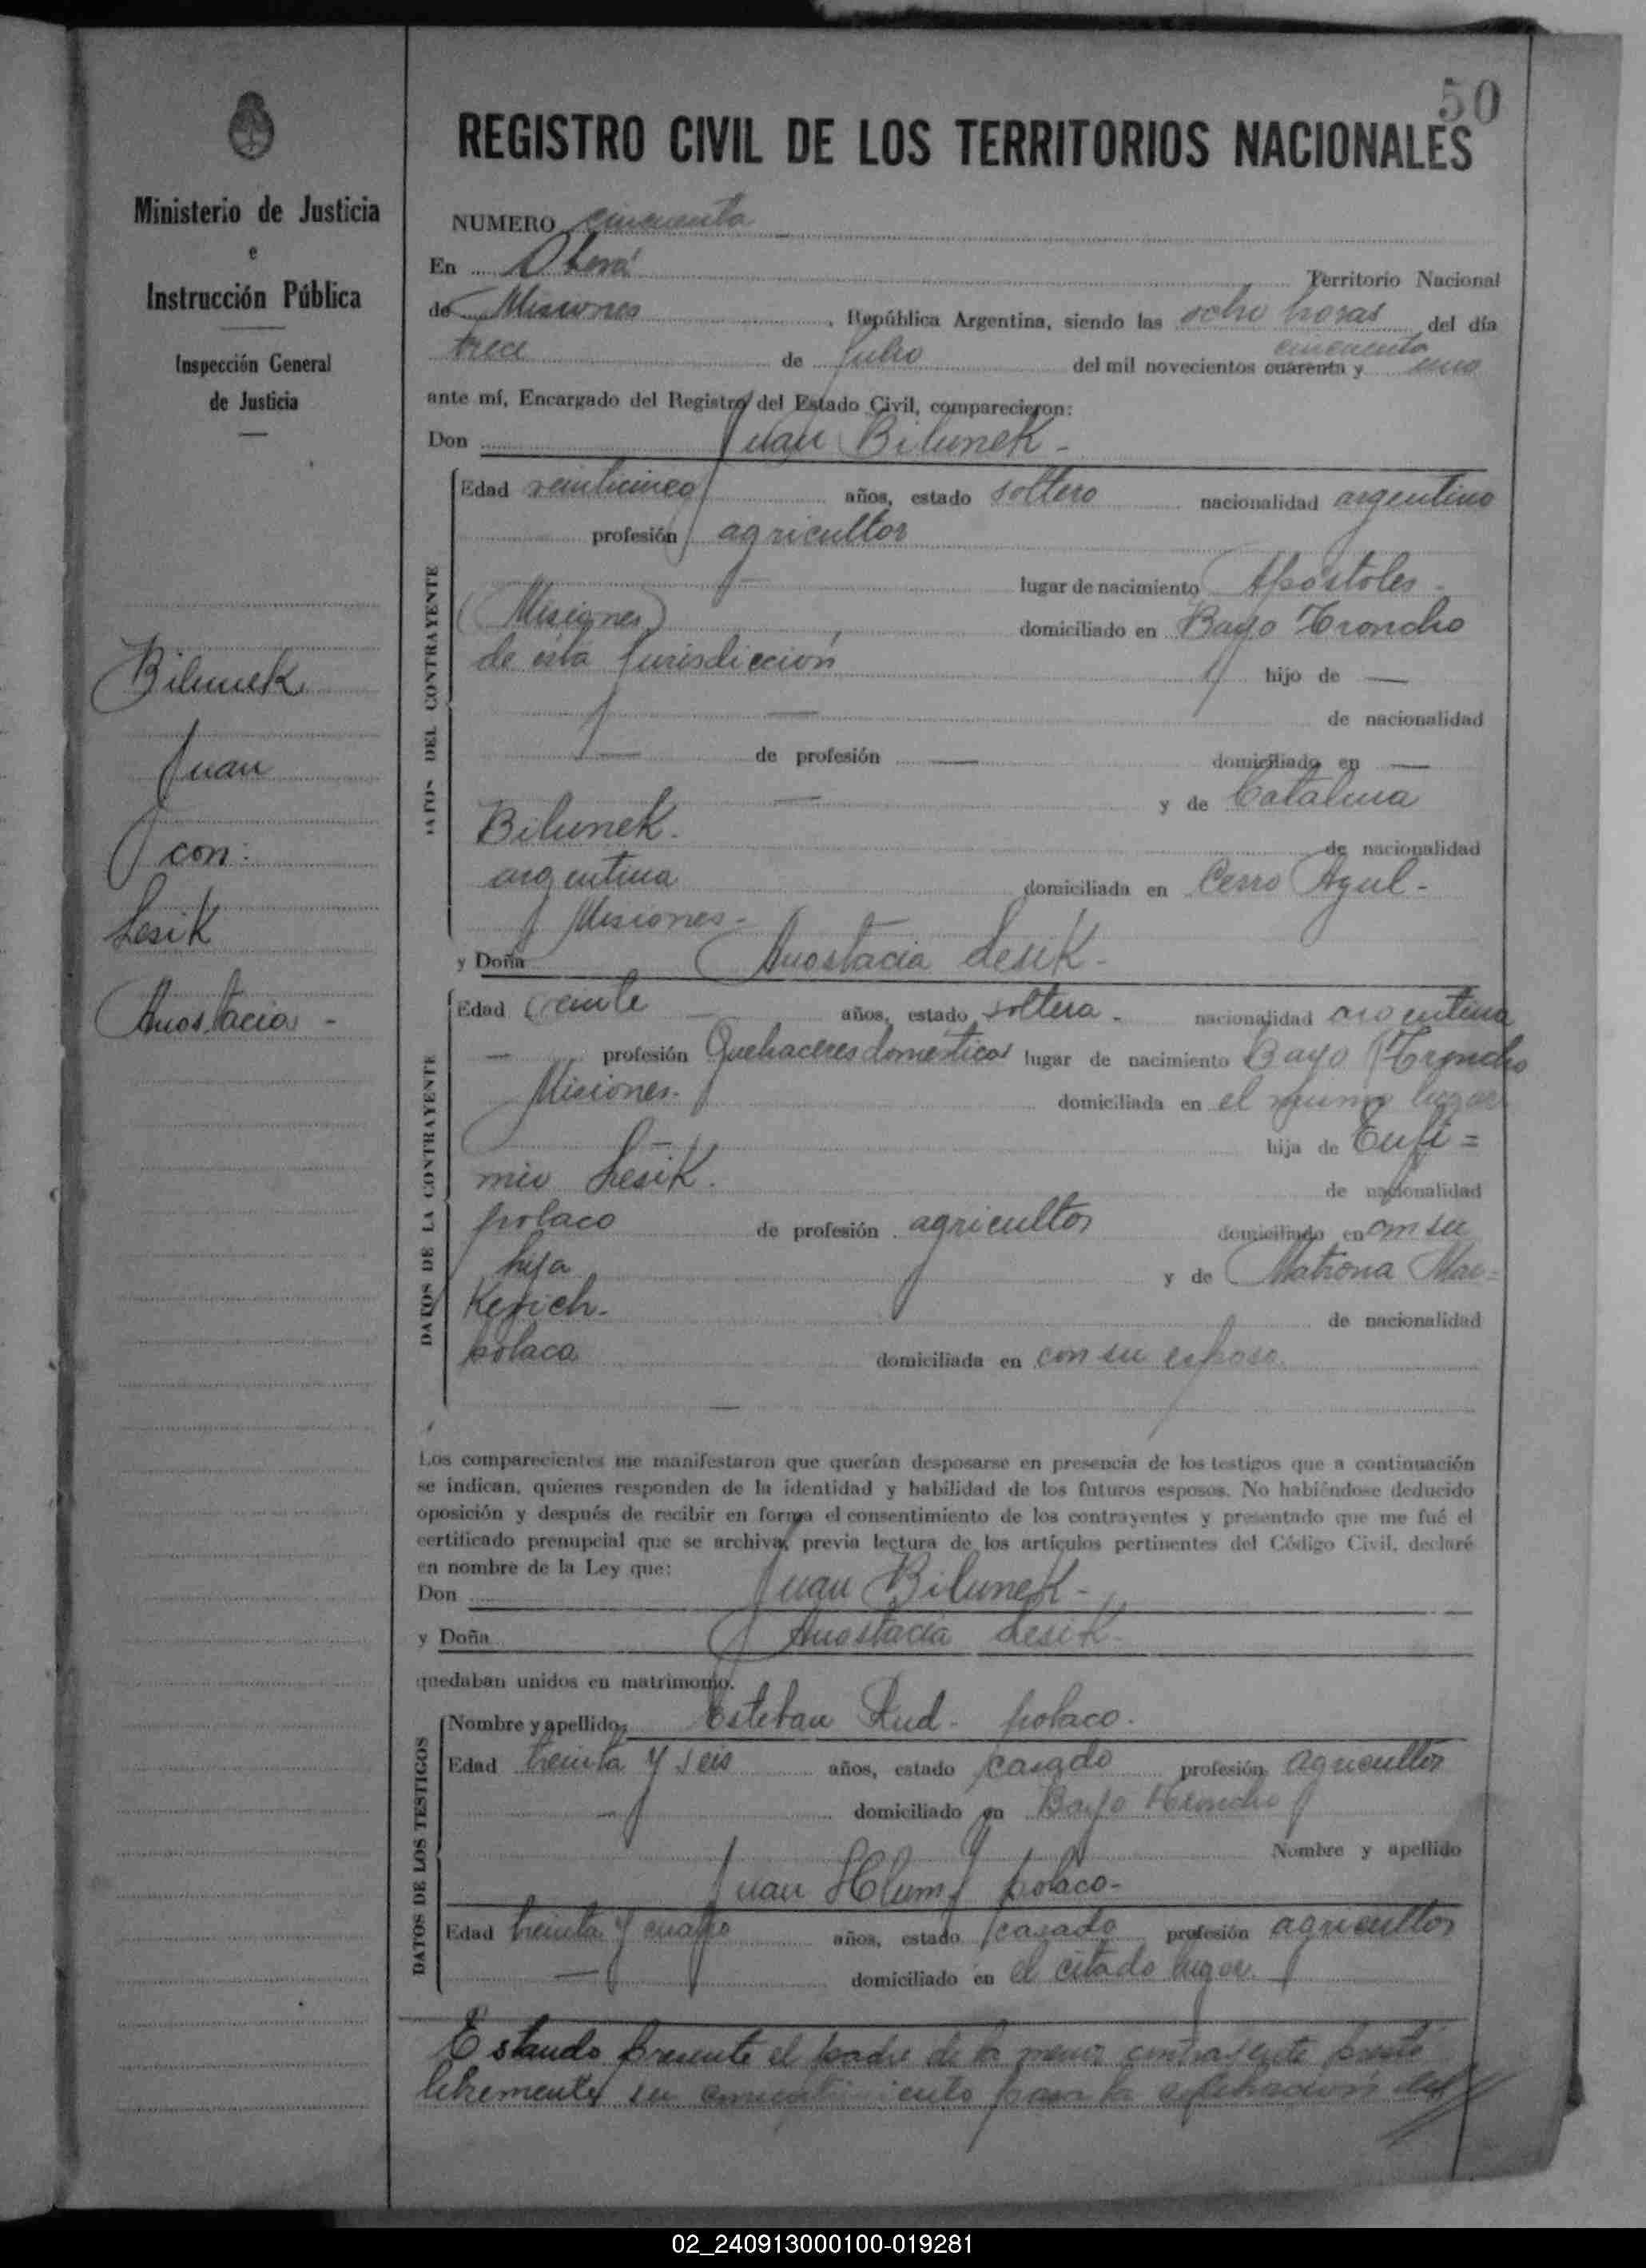 50
REGISTRO CIVIL DE LOS TERRITORIOS NACIONALES
Ministerio de Justicia
e
Instrucción Pública
Inspección General
de Justicia
Bilunek
Juan
con:
Lesik
Anastacia -
NUMERO cincuenta
En Oberá Territorio Nacional
de Misiones, República Argentina, siendo las ocho horas del día
cincuenta
trece de Julio del mil novecientos cuarenta y uno
ante mí, Encargado del Registro del Estado Civil, comparecieron:
Don Juan Bilunek -
DATOS DEL CONTRAYENTE
Edad veinticinco años, estado soltero nacionalidad argentino
profesión agricultor
lugar de nacimiento Apóstoles
(Misiones) domiciliado en Bayo Troncho
de esta Jurisdicción hijo de —
— de nacionalidad
— de profesión — domiciliado en —
— y de Catalina
Bilunek. de nacionalidad
argentina domiciliada en Cerro Azul -
Misiones -
y Doña Anastacia Lesik -
DATOS DE LA CONTRAYENTE
Edad veinte años, estado soltera - nacionalidad argentina
— profesión Quehaceres domésticos lugar de nacimiento Bayo Troncho
Misiones. domiciliada en el mismo lugar
— hija de Eufi=
mio Lesik. de nacionalidad
polaco de profesión agricultor domiciliado en con su
hija y de Matrona Mar=
Kevich- de nacionalidad
polaca domiciliada en con su esposo
—
Los comparecientes me manifestaron que querían desposarse en presencia de los testigos que a continuación
se indican, quienes responden de la identidad y habilidad de los futuros esposos. No habiéndose deducido
oposición y después de recibir en forma el consentimiento de los contrayentes y presentado que me fué el
certificado prenupcial que se archiva, previa lectura de los artículos pertinentes del Código Civil, declaré
en nombre de la Ley que:
Don Juan Bilunek -
y Doña Anastacia Lesik -
quedaban unidos en matrimonio.
DATOS DE LOS TESTIGOS
Nombre y apellido, Esteban - polaco.
Edad treinta y seis años, estado casado profesión agricultor
— domiciliado en Bayo Troncho
Nombre y apellido
Juan polaco-
Edad treinta y cuatro años, estado casado profesión agricultor
— domiciliado en el citado lugar.
Estando presente el padre de la menor contrayente prestó
libremente su consentimiento para la celebración del
02_240913000100-019281